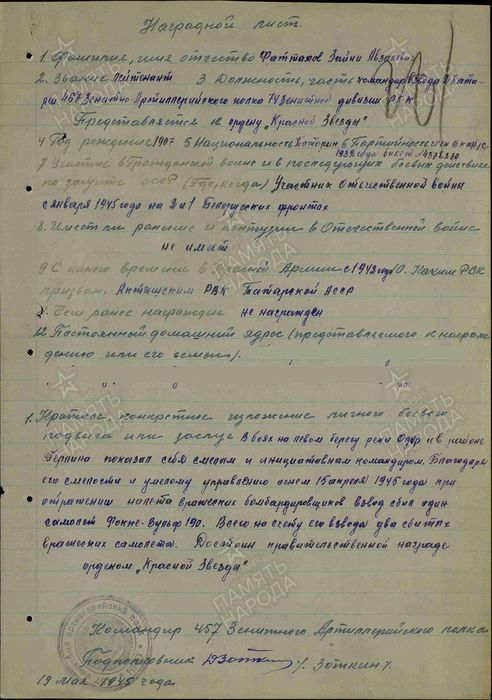 Наградной лист.
1. Фамилия, имя отчество Фаттахов Зайни
2. Звание лейтенант 3 Должность, часть командир взвода 2 Бата-
реи 457 Зенитно Артиллерийского полка 74 Зенитной дивизии РГК
Представляется к ордену „Красной Звезды"
4 Год рождения 1907 5 Национальность Татарин 6 Партийность член ВКП(б) с
1932 года билет №
7. Участие в Гражданской войне и в последующих боевых действиях
по защите СССР (Где, когда) Участник Отечественной войны
с января 1945 года на 2 и 1 Белорусских фронтах
8. Имеет ли ранение и контузии в Отечественной войне
не имеет
9 С какого времени в Красной Армии с 1942 года 10. Каким РВК
призван. Актышским РВК Татарской АССР
Чем ранее награжден не награжден
12 Постоянный домашний адрес (представляемого к награж-
дению или его семьи).
1. Краткое, конкретное изложение личного боевого
подвига или заслуг В боях на левом берегу реки Одер и в районе
Берлина показал себя смелым и инициативным командиром. Благодаря
его смелости и умелому управлению огнем 15 апреля 1945 года при
отражении налета вражеских бомбардировщиков взвод сбил один
самолет Фокке-Вульф 190. Всего на счету его взвода два сбитых
вражеских самолета. Достоин правительственной награде
орденом „Красной Звезды"
Командир 457 Зенитного Артиллерийского полка
Подполковник Зоткин /Зоткин/.
19 Мая 1945 года
ПАМЯТЬ
НАРОДА